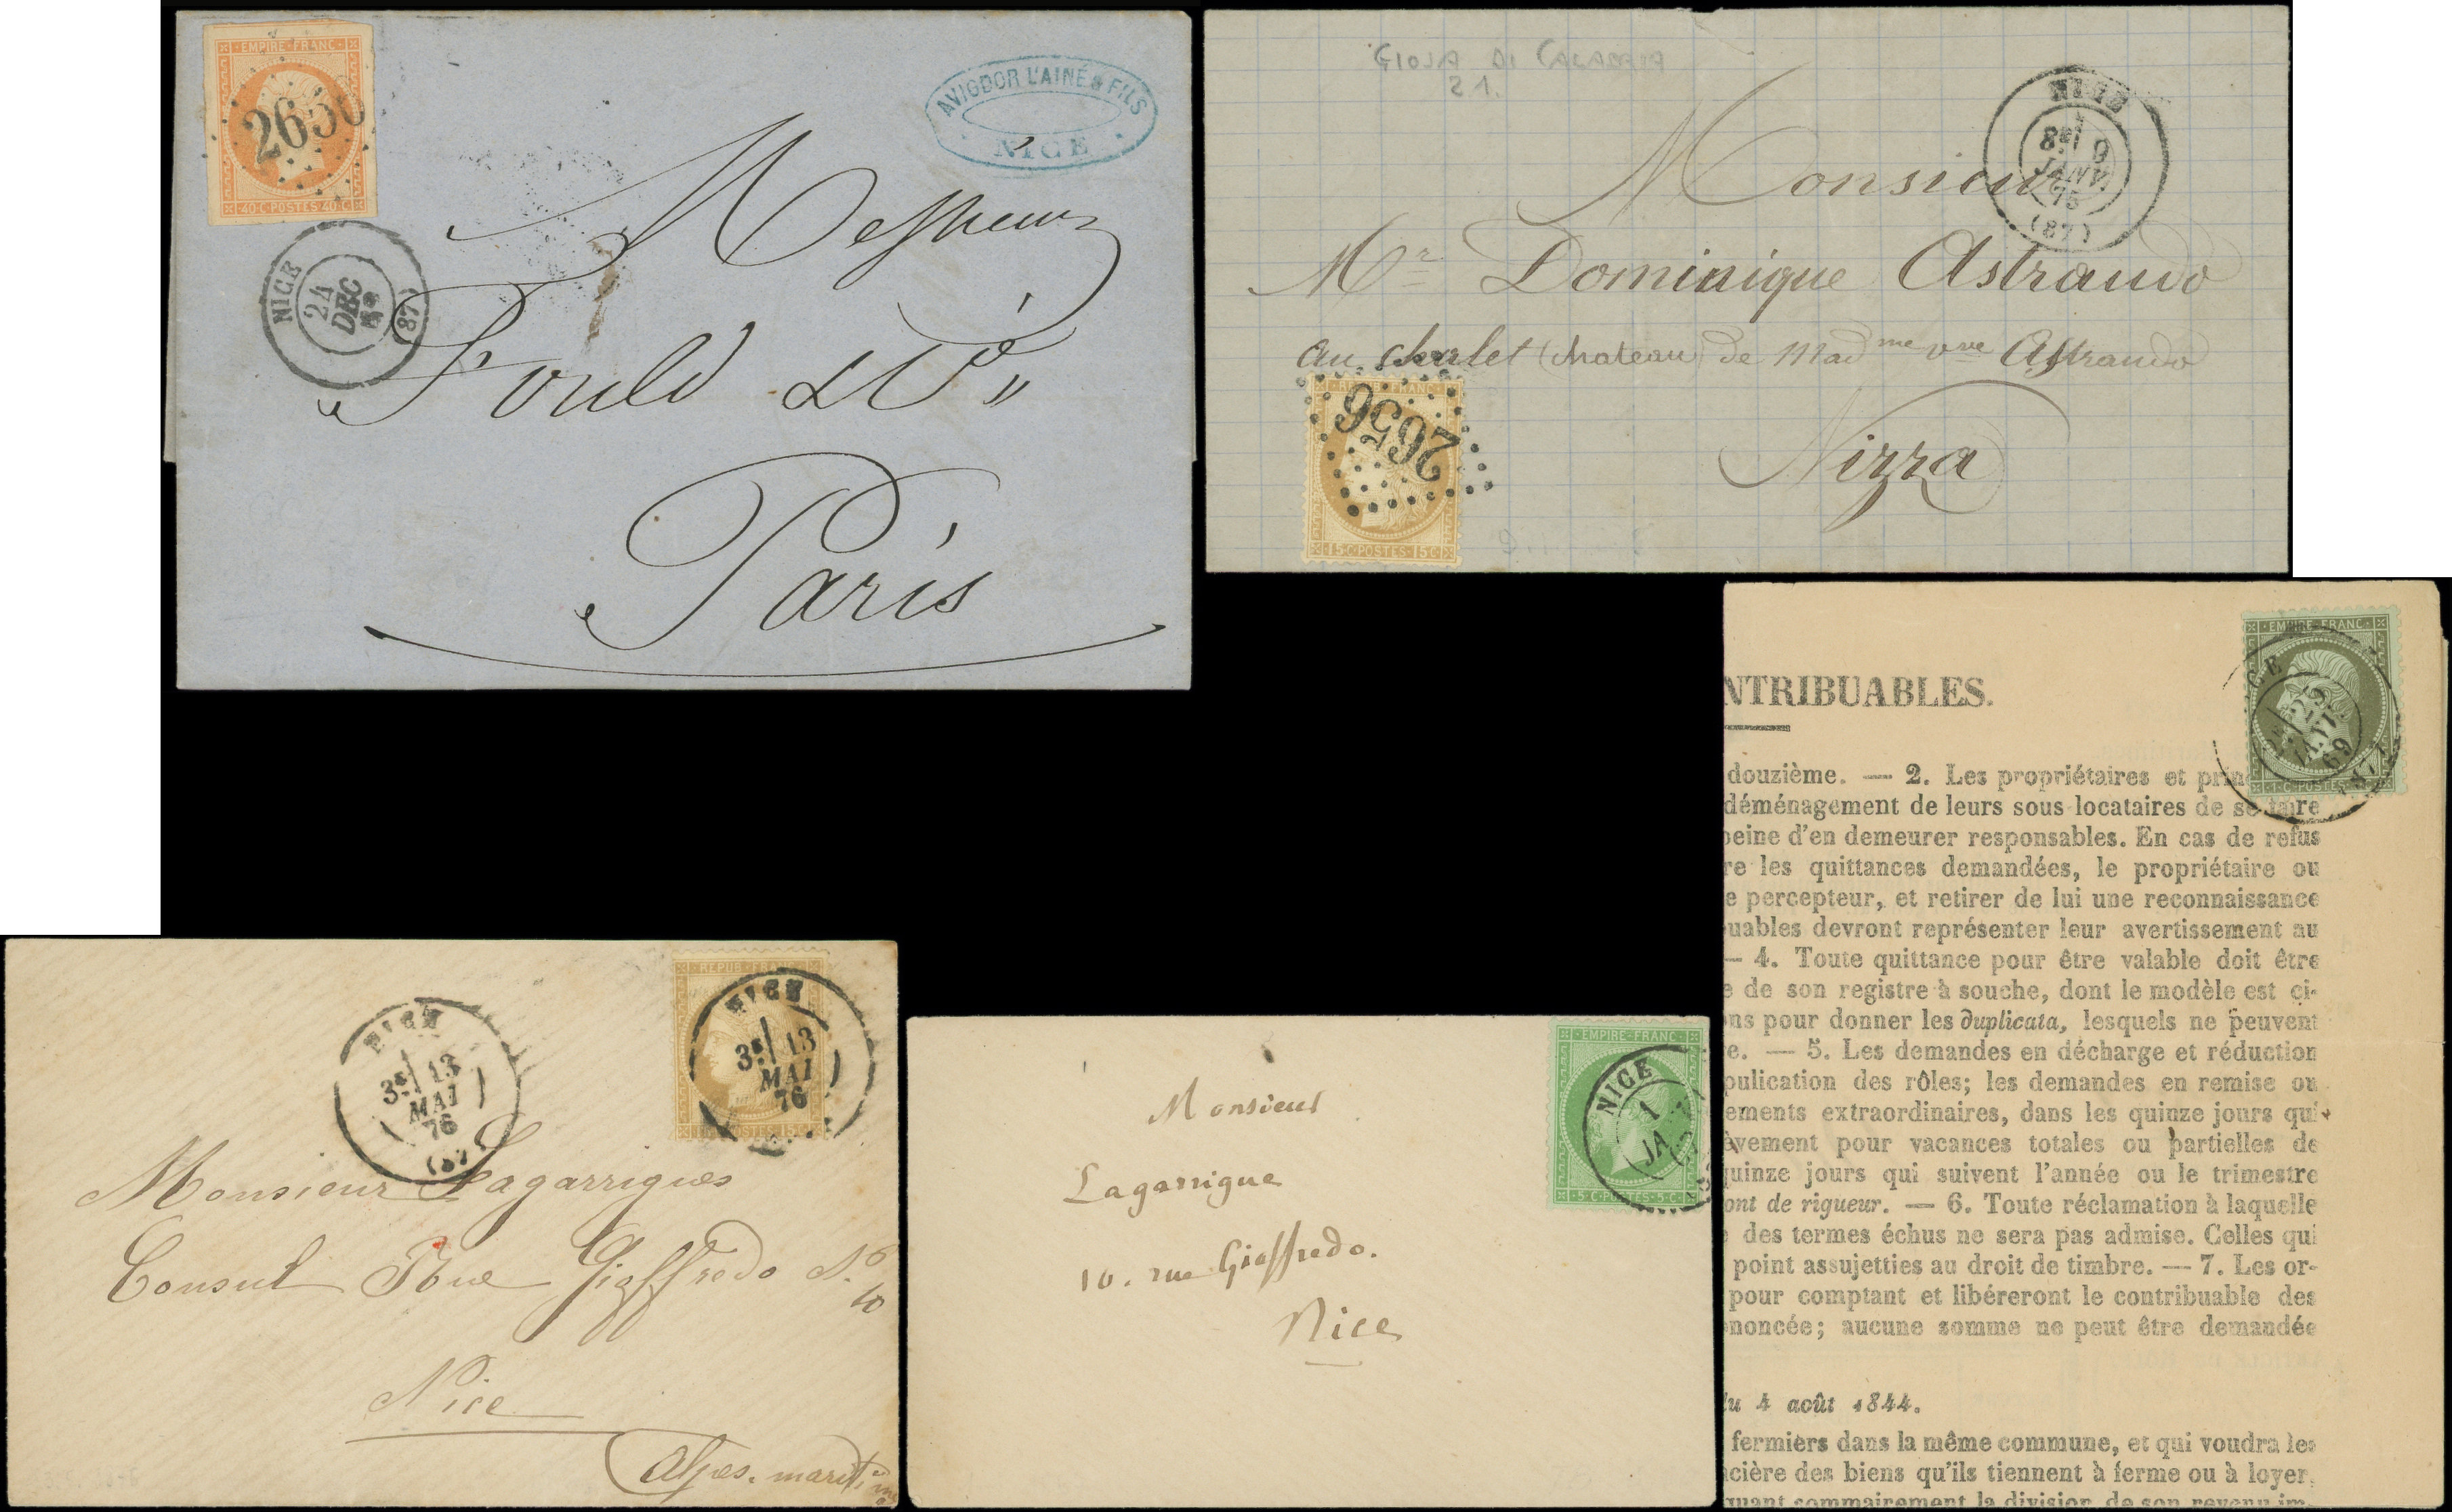 EMPIRE FRANC
2656
40 C POSTES 40 C
NICE
24
DEC
(87)
AVIGDOR L'AINÉ & FILS
NICE
Messieurs
Fould & Cie
Paris
GIOJA DI CALABRIA
21.
NICE
8E/ 9
JANV
75
(87)
Monsieur
Mr Dominique Astraudo
au chalet (chateau) de Madme vve Astraudo
Nizza
REPUB FRANC
2656
15 C POSTES 15 C
EMPIRE FRANC
25
69
(87)
1 C POSTES
NTRIBUABLES.
douzième. — 2. Les propriétaires et prin
déménagement de leurs sous-locataires de se faire
peine d'en demeurer responsables. En cas de refus
re les quittances demandées, le propriétaire ou
e percepteur, et retirer de lui une reconnaissance
uables devront représenter leur avertissement au
— 4. Toute quittance pour être valable doit être
e de son registre à souche, dont le modèle est ci-
ons pour donner les duplicata, lesquels ne peuvent
e. — 5. Les demandes en décharge et réduction
publication des rôles; les demandes en remise ou
ements extraordinaires, dans les quinze jours qui
èvement pour vacances totales ou partielles de
quinze jours qui suivent l'année ou le trimestre
ont de rigueur. — 6. Toute réclamation à laquelle
des termes échus ne sera pas admise. Celles qui
point assujetties au droit de timbre. — 7. Les or-
pour comptant et libéreront le contribuable des
noncée; aucune somme ne peut être demandée
du 4 août 1844.
fermiers dans la même commune, et qui voudra les
cière des biens qu'ils tiennent à ferme ou à loyer,
quant sommairement la division de son revenu im
REPUB FRANC
NICE
3E/ 13
MAI
76
(87)
NICE
3E/ 13
MAI
76
POSTES 15 C
Monsieur Lagarrigues
Consul Rue Gioffredo No
10
Nice
Alpes-maritimes
EMPIRE FRANC
NICE
1
JA
5 C POSTES 5 C
Monsieur
Lagarrigue
10. rue Gioffredo.
Nice